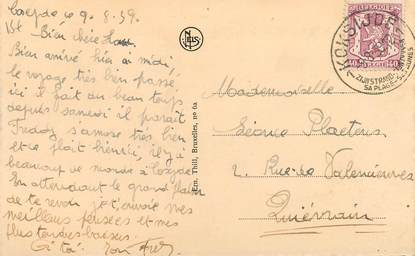 Coxyde le 9.8.39.
Bien chère
Bien arrivé hier à midi
le voyage très bien passé,
ici il fait du beau temps
depuis samedi il parait
Freddy s'amuse très bien
et se plait bien ici, il y a
beaucoup de monde à Coxyde
En attendant le grand plaisir
de te revoir je t'envoie mes
meilleurs pensées et mes
plus tendres baisers.
NELS
Ern. Thill, Bruxelles, No 62
BELGIQUE
KOKSIJDE
ZIJN STRAND
SA PLAGE
Mademoiselle
2. Rue de Valenciennes
Quiévrain